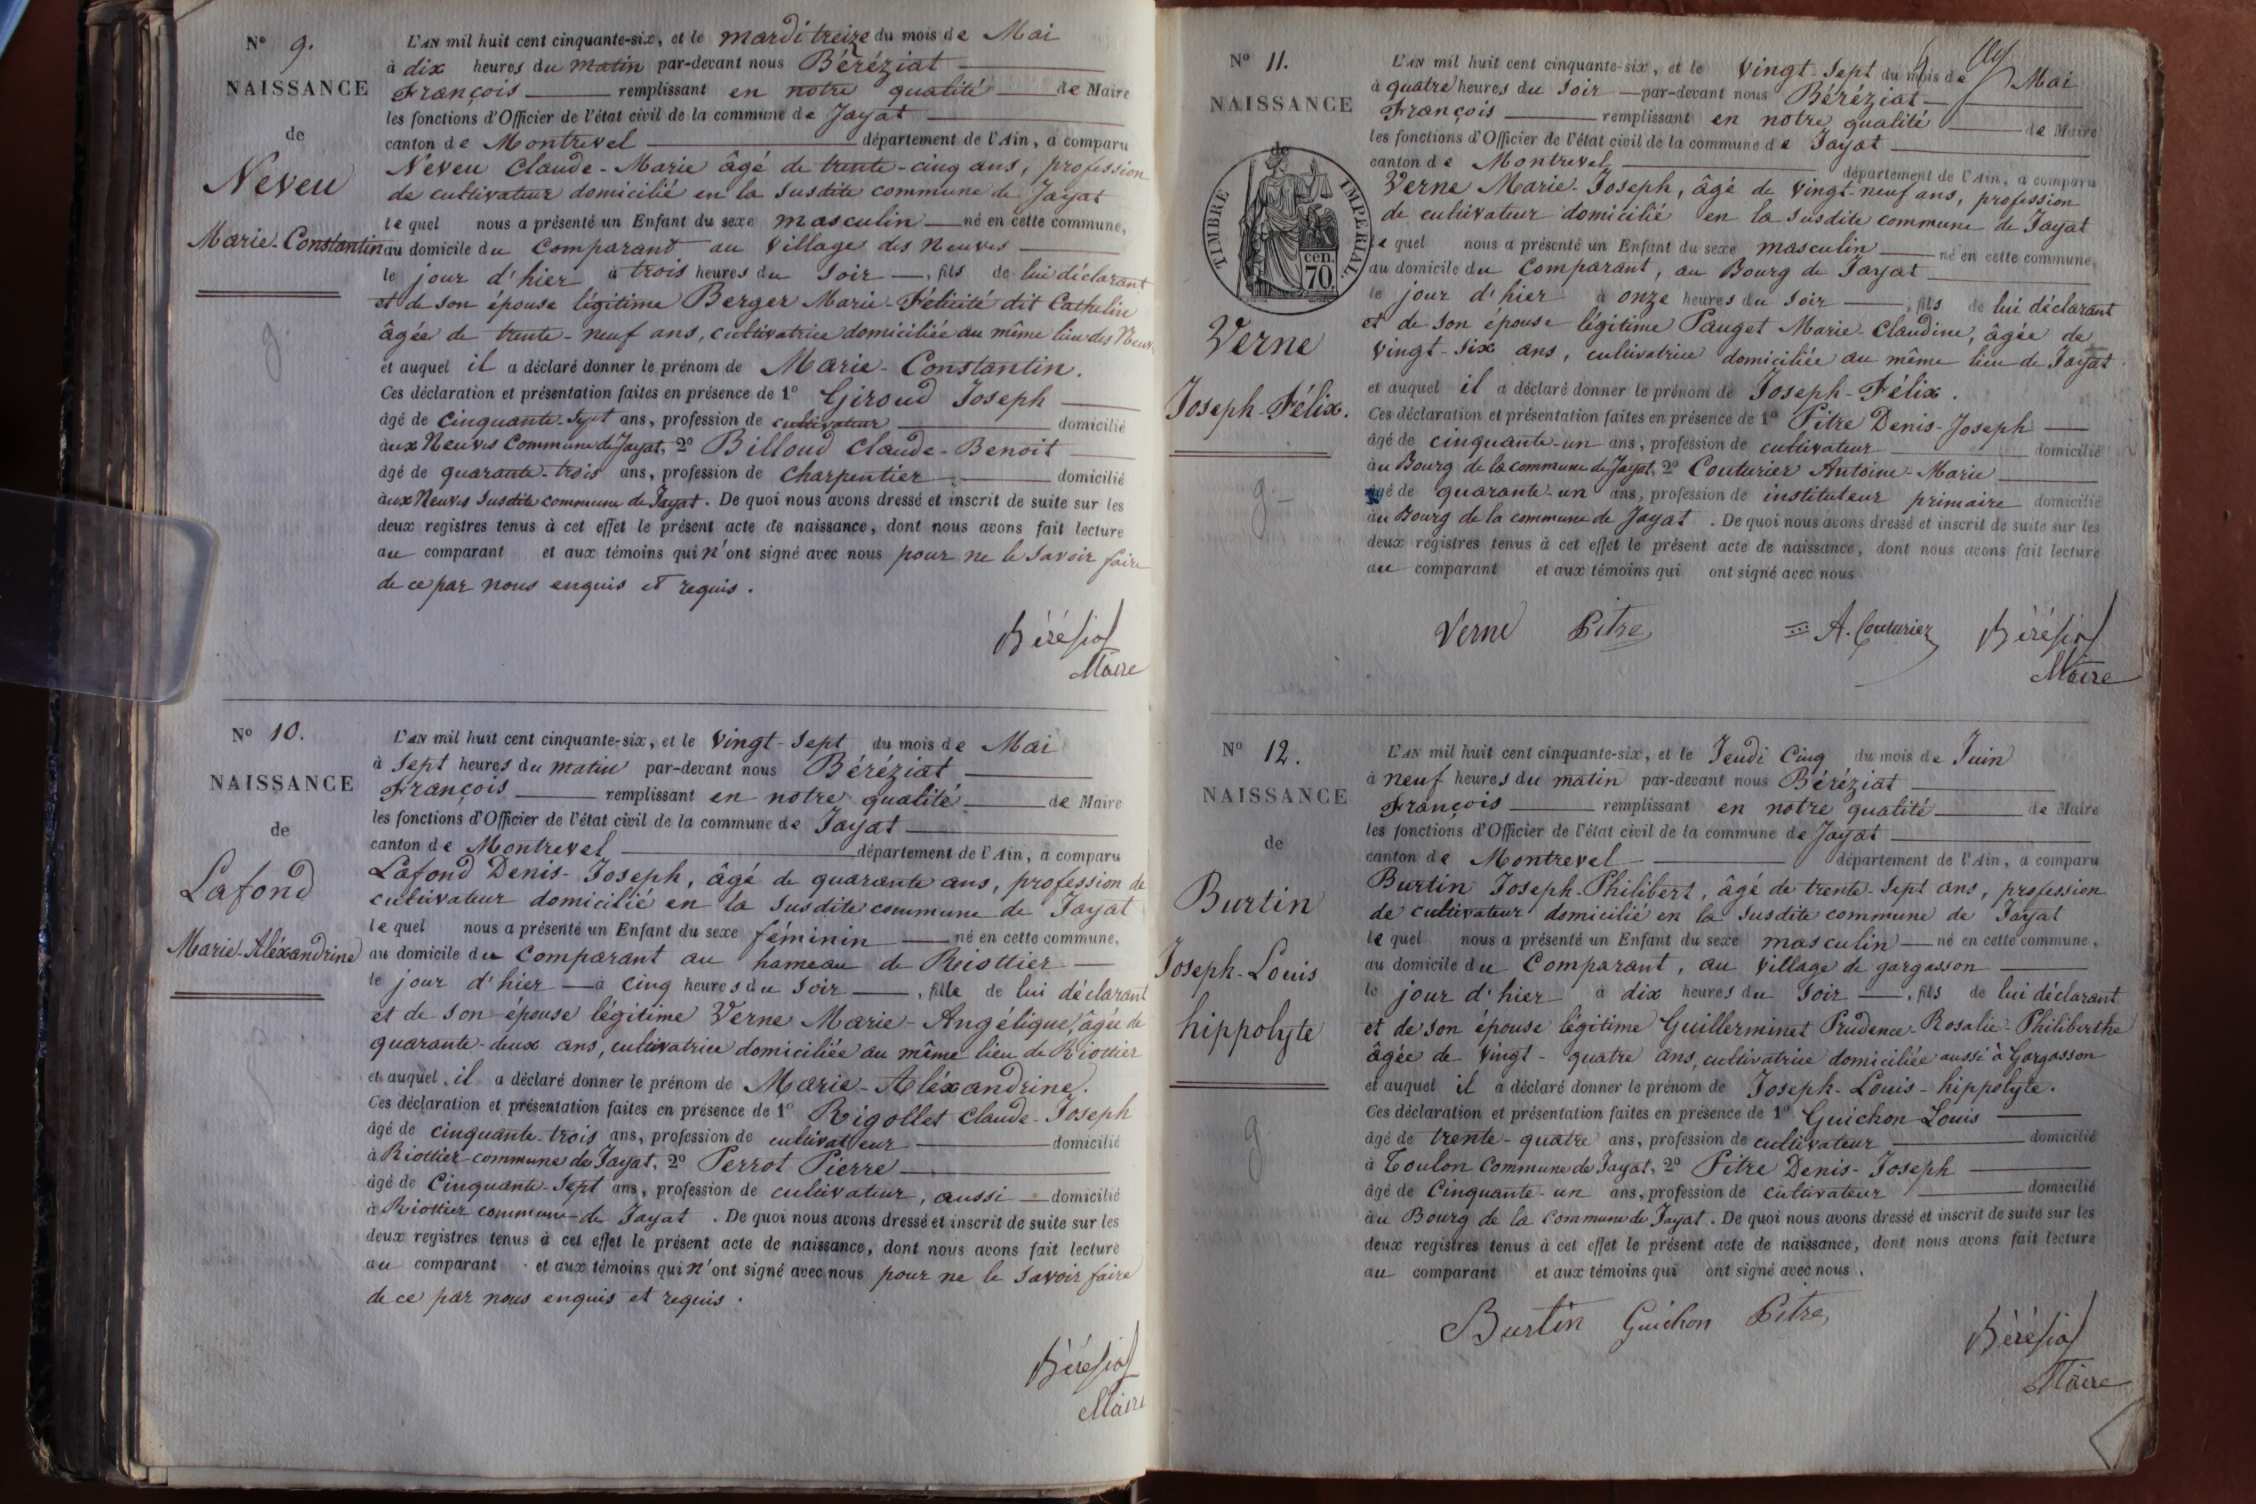 N° 9.
NAISSANCE
de
Neveu
Marie-Constantin
L'AN mil huit cent cinquante-six, et le mardi treize du mois de Mai
à dix heures du matin par-devant nous Béréziat
François remplissant en notre qualité de Maire
les fonctions d'Officier de l'état civil de la commune de Jayat
canton de Montrevel département de l'Ain, a comparu
Neveu Claude-Marie âgé de trente-cinq ans, profession
de cultivateur domicilié en la susdite commune de Jayat
lequel nous a présenté un Enfant du sexe masculin né en cette commune,
au domicile du comparant au village des Neuves
le jour d'hier à trois heures du soir, fils de lui déclarant
et de son épouse légitime Berger Marie-Félicité dit Cathelin
âgée de trente-neuf ans, cultivatrice domiciliée au même lieu des
et auquel il a déclaré donner le prénom de Marie-Constantin.
Ces déclaration et présentation faites en présence de 1° Giroud Joseph
âgé de cinquante-sept ans, profession de cultivateur domicilié
aux Neuves Commune de Jayat, 2° Billoud Claude-Benoit
âgé de quarante-trois ans, profession de charpentier domicilié
aux Neuves susdite commune de Jayat. De quoi nous avons dressé et inscrit de suite sur les
deux registres tenus à cet effet le présent acte de naissance, dont nous avons fait lecture
au comparant et aux témoins qui n'ont signé avec nous pour ne le savoir faire
de ce par nous enquis et requis.
Béréziat
Maire
N° 10.
NAISSANCE
de
Lafond
Marie-Aléxandrine
L'AN mil huit cent cinquante-six, et le vingt-sept du mois de Mai
à sept heures du matin par-devant nous Béréziat
François remplissant en notre qualité de Maire
les fonctions d'Officier de l'état civil de la commune de Jayat
canton de Montrevel département de l'Ain, a comparu
Lafond Denis-Joseph, âgé de quarante ans, profession de
cultivateur domicilié en la susdite commune de Jayat
lequel nous a présenté un Enfant du sexe féminin né en cette commune,
au domicile du comparant au hameau de Riottier
le jour d'hier à cinq heures du soir, fille de lui déclarant
et de son épouse légitime Verne Marie-Angélique, âgée de
quarante-deux ans, cultivatrice domiciliée au même lieu de Riottier
et auquel il a déclaré donner le prénom de Marie-Aléxandrine.
Ces déclaration et présentation faites en présence de 1° Rigollet Claude-Joseph
âgé de cinquante-trois ans, profession de cultivateur domicilié
à Riottier commune de Jayat, 2° Perrot Pierre
âgé de cinquante-sept ans, profession de cultivateur, aussi domicilié
à Riottier commune de Jayat. De quoi nous avons dressé et inscrit de suite sur les
deux registres tenus à cet effet le présent acte de naissance, dont nous avons fait lecture
au comparant et aux témoins qui n'ont signé avec nous pour ne le savoir faire
de ce par nous enquis et requis.
Béréziat
Maire
N° 11.
NAISSANCE
de
TIMBRE IMPÉRIAL
cen.
70.
Verne
Joseph-Félix.
L'AN mil huit cent cinquante-six, et le vingt-sept du mois de Mai
à quatre heures du soir par-devant nous Béréziat
François remplissant en notre qualité de Maire
les fonctions d'Officier de l'état civil de la commune de Jayat
canton de Montrevel département de l'Ain, a comparu
Verne Marie-Joseph, âgé de vingt-neuf ans, profession
de cultivateur domicilié en la susdite commune de Jayat
lequel nous a présenté un Enfant du sexe masculin né en cette commune,
au domicile du comparant, au Bourg de Jayat
le jour d'hier à onze heures du soir, fils de lui déclarant
et de son épouse légitime Pauget Marie-Claudine, âgée de
vingt-six ans, cultivatrice domiciliée au même lieu de Jayat.
et auquel il a déclaré donner le prénom de Joseph-Félix.
Ces déclaration et présentation faites en présence de 1° Pitre Denis-Joseph
âgé de cinquante-un ans, profession de cultivateur domicilié
au Bourg de la commune de Jayat, 2° Couturier Antoine-Marie
âgé de quarante-un ans, profession de instituteur primaire domicilié
au Bourg de la commune de Jayat. De quoi nous avons dressé et inscrit de suite sur les
deux registres tenus à cet effet le présent acte de naissance, dont nous avons fait lecture
au comparant et aux témoins qui ont signé avec nous.
Verne Pitre A. Couturier Béréziat
Maire
N° 12.
NAISSANCE
de
Burtin
Joseph-Louis
hippolyte
L'AN mil huit cent cinquante-six, et le Jeudi Cinq du mois de Juin
à neuf heures du matin par-devant nous Béréziat
François remplissant en notre qualité de Maire
les fonctions d'Officier de l'état civil de la commune de Jayat
canton de Montrevel département de l'Ain, a comparu
Burtin Joseph-Philibert, âgé de trente-sept ans, profession
de cultivateur domicilié en la susdite commune de Jayat
lequel nous a présenté un Enfant du sexe masculin né en cette commune,
au domicile du comparant, au village de gargasson
le jour d'hier à dix heures du soir, fils de lui déclarant
et de son épouse légitime Guillerminet Prudence-Rosalie-Philiberthe
âgée de vingt-quatre ans, cultivatrice domiciliée aussi à Gargasson
et auquel il a déclaré donner le prénom de Joseph-Louis-hippolyte.
Ces déclaration et présentation faites en présence de 1° Guichon Louis
âgé de trente-quatre ans, profession de cultivateur domicilié
à Toulon Commune de Jayat, 2° Pitre Denis-Joseph
âgé de Cinquante-un ans, profession de cultivateur domicilié
au Bourg de la commune de Jayat. De quoi nous avons dressé et inscrit de suite sur les
deux registres tenus à cet effet le présent acte de naissance, dont nous avons fait lecture
au comparant et aux témoins qui ont signé avec nous.
Burtin Guichon Pitre Béréziat
Maire